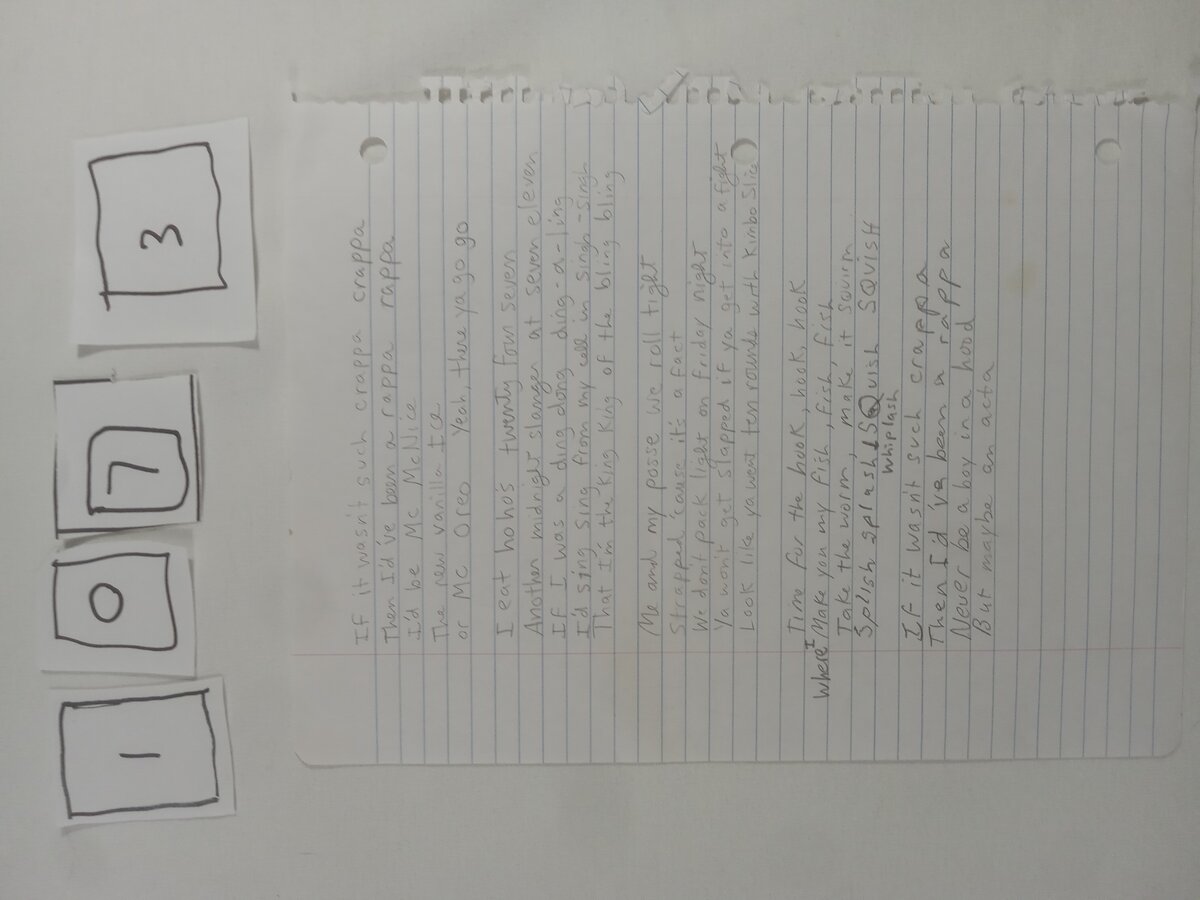 1 0 7 3
If it wasn't such crappa crappa
Then I'd've been a rappa rappa
I'd be Mc McNice
The new vanilla Ice
or MC Oreo Yeah, there ya go go
I eat hoho's twenty four seven
Another midnight slanger at seven eleven
If I was a ding dong ding-a-ling
I'd sing sing from my cell in singh-singh
That I'm the King King of the bling bling
Me and my posse we roll tight
Strapped 'cause it's a fact
We don't pack light on friday night
Ya won't get slapped if ya get into a fight
Look like ya went ten rounds with Kimbo Slice
Time for the hook, hook, hook
Where I Make you my fish, fish, fish
Take the worm, make it squirm
Splish splash SQuish SQVISH
whiplash
If it wasn't such crappa
Then I'd've been a rappa
Never be a boy in a hood
But maybe an acta